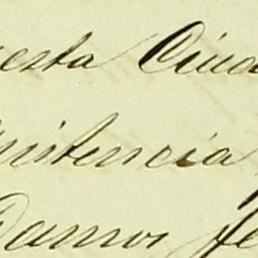 esta Ciud
nitencia
Damos fe